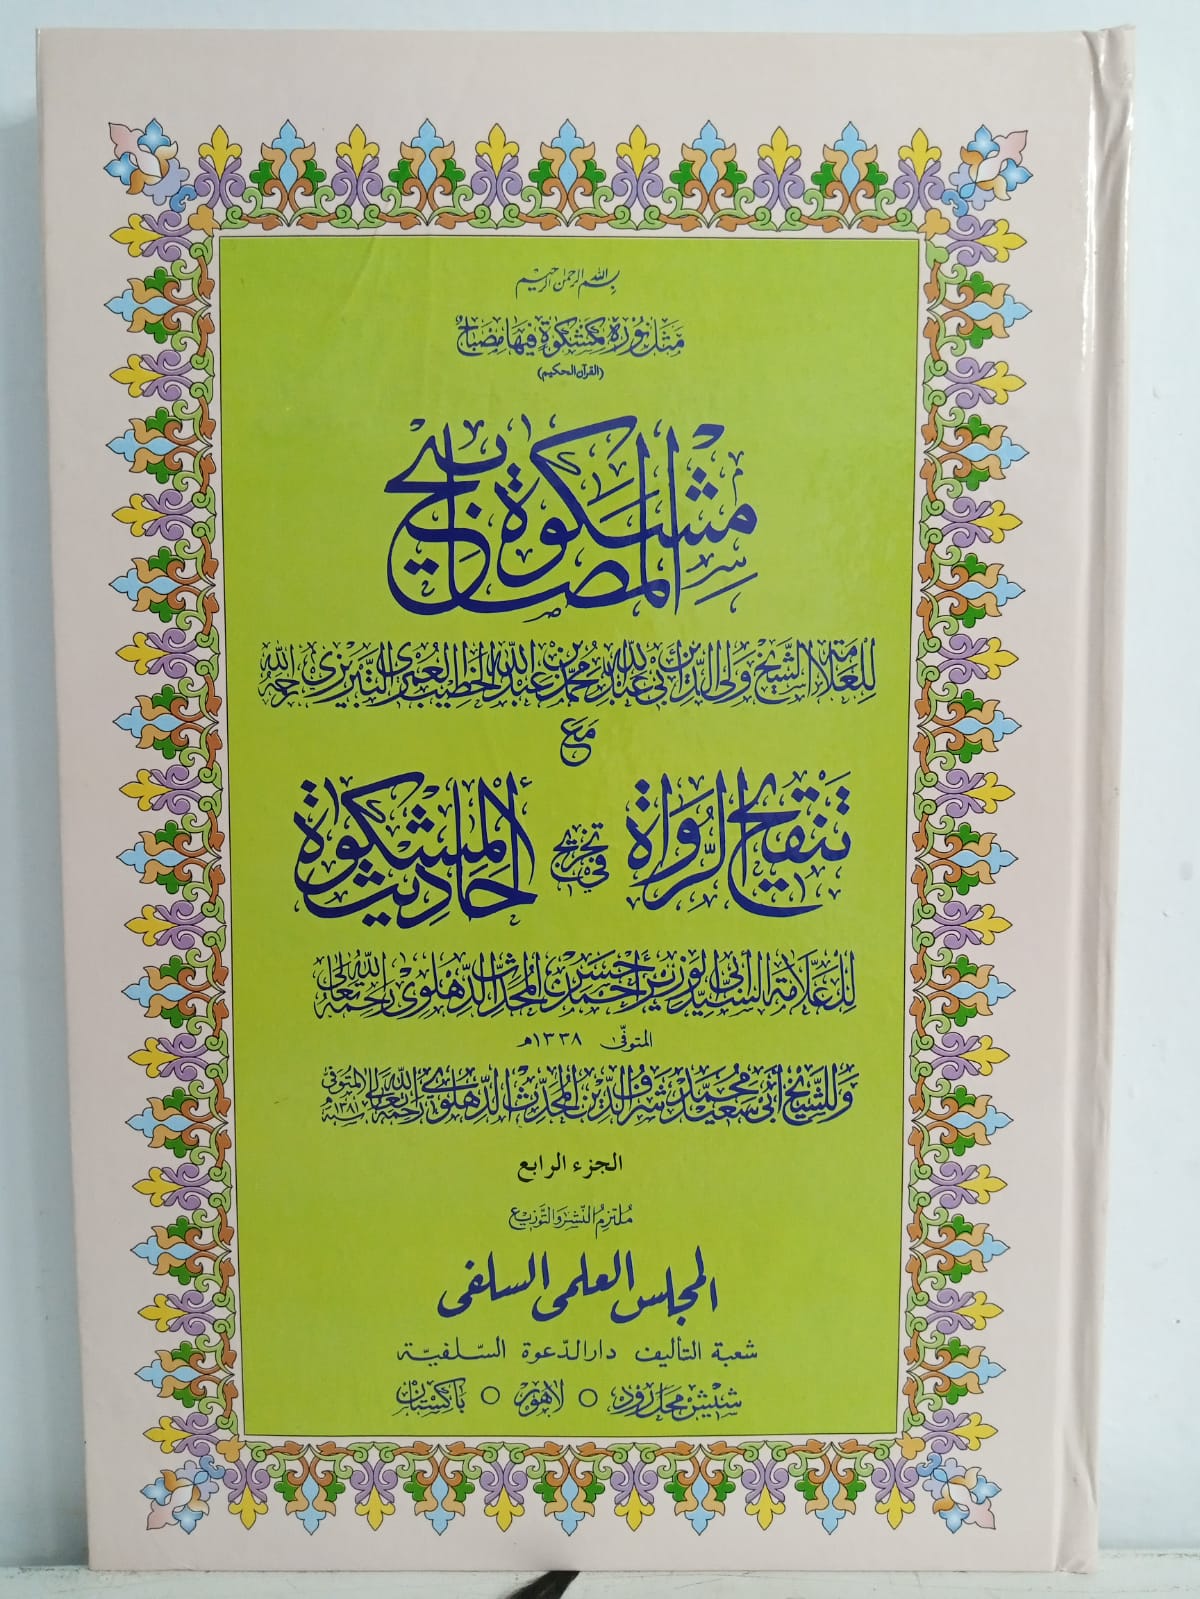 بسم الله الرحمن الرحيم
مَثَلُ نُورِهٖ كَمِشْكٰوةٍ فِيهَا مِصْبَاحٌ
(القرآن الحكيم)
مِشْكٰوةُ الْمَصَابِيْحِ
لِلْعَلَّامَةِ الشَّيْخِ وَلِيِّ الدِّيْنِ أَبِي عَبْدِ اللهِ مُحَمَّدِ بْنِ عَبْدِ اللهِ الْخَطِيْبِ الْعُمَرِيِّ التَّبْرِيْزِيِّ رَحِمَهُ الله
مَعَ
تَنْقِيْحُ الرُّوَاةِ فِي تَخْرِيْجِ أَحَادِيْثِ الْمِشْكٰوةِ
لِلْعَلَّامَةِ السَّيِّدِ أَبِي الْوَزِيْرِ أَحْمَدَ حَسَن الْمُحَدِّثِ الدِّهْلَوِيِّ رَحِمَهُ اللهُ تَعَالٰى
المتوفّٰى ١٣٣٨هـ
وَلِلشَّيْخِ أَبِي سَعِيْد مُحَمَّد شَرَفِ الدِّيْنِ الْمُحَدِّثِ الدِّهْلَوِيِّ رَحِمَهُ اللهُ تَعَالٰى الْمُتَوَفّٰى سنة ١٣٨١
الجزء الرابع
مُلتزمُ النّشر والتّوزيع
المجلس العلمى السلفى
شعبة التأليف دار الدّعوة السّلفيّة
شيش محل رود ○ لاهور ○ باكستان